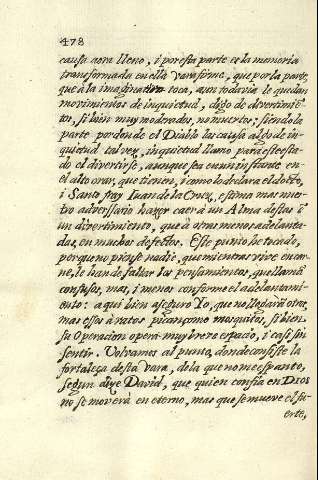 478
causa aora lleno, i por esta parte es la memoria
transformada en ella varaforme, que por la parte,
que à la imaginativa toca, aun todavia le quedan
movimientos de inquietud, digo de divertimiẽ-
tos, si bien muy moderados, no muertos; siendo la
parte por donde el Diablo las causa algo de in-
quietud tal vez, inquietud llamo para este esta-
do el divertirse, aunque sea en un instante en
el alto orar, que tienen, i como lo declara el doɛto,
i Santo fray Iuan de la Cruz, estima mas nues-
tro adversario hazer caer à un Alma destas ẽ
un divertimiento, que à otras menos adelanta-
das, en muchos defectos. Este punto he tocado,
porque no piense nadie, que mientras vive en car-
ne, le han de faltar los pensamientos, que llamã
confusos, mas, i menos conforme el adelantami-
ento: a qui bien aseguro Yo, que no llegarà otros,
mas essos à ratos pican como mosquitos, si bien
su Operacion opera muy breve espacio, i casi sin
sentir. Volvamos al punto, donde consiste la
fortaleça desta Vara, de la que no me espanto,
segun dixe David, que quien confia en DIOS
no se moverà en eterno, mas que se mueve el fu-
erte,